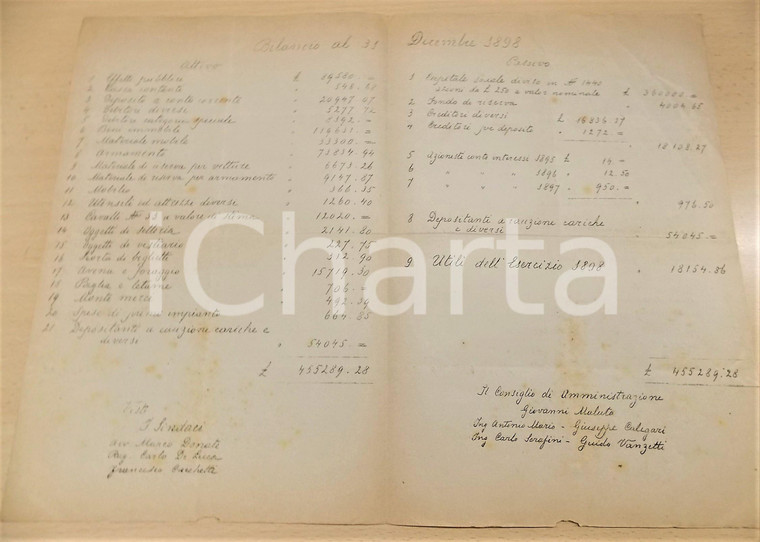 Bilancio al 31 Decembre 1898
Attivo
1 Effetti pubblici £ 19560. =
2 Cassa contante " 548.88
3 Deposito a conto corrente " 20445.67
4 Debitori diversi " 5277.72
5 Debitori categoria speciale "
6 Beni immobili "
7 Materiale mobile " 53500. =
8 Armamento " 72034.44
9 Materiale di riserva per vetture " 6673.26
10 Materiale di riserva per armamento " 9147.87
11 Mobilio " 366.35
12 Utensili ed attrezzi diversi " 1260.40
13 Cavalli N° a valore di stima " 12020. =
14 Oggetti di selleria " 2141.80
15 Oggetti di vestiario " 227.75
16 Scorta di biglietti " 312.90
17 Avena e foraggio " 15719.30
18 Paglia e lettime " 706. =
19 Monte merci " 492.39
20 Spese di primo impianto " 664.85
21 Depositanti a cauzione cariche e
diversi " 54045 =
£ 455289.28
Visto
I Sindaci
avv. Marco Donati
Rag. Carlo De Luca
Francesco
Passivo
1 Capitale sociale diviso in N° 1440
azioni da £ 250 a valor nominale £ 360000. =
2 Fondo di riserva " 4004.65
3 Creditori diversi £ 16836.27
4 Creditori per deposito " 1272. =
" 18108.27
5 Azionisti conto interessi 1895 £ 14 =
6 " " " 1896 " 12.50
7 " " " 1897 " 950. =
" 976.50
8 Depositanti a cauzione cariche
e diversi " 54045. =
9 Utili dell'Esercizio 1898 " 18154.86
£ 455289.28
Il Consiglio di Amministrazione
Giovanni Maluta
Ing Antonio Mario - Giuseppe Calegari
Ing Carlo Serafini - Guido Vanzetti
iCharta